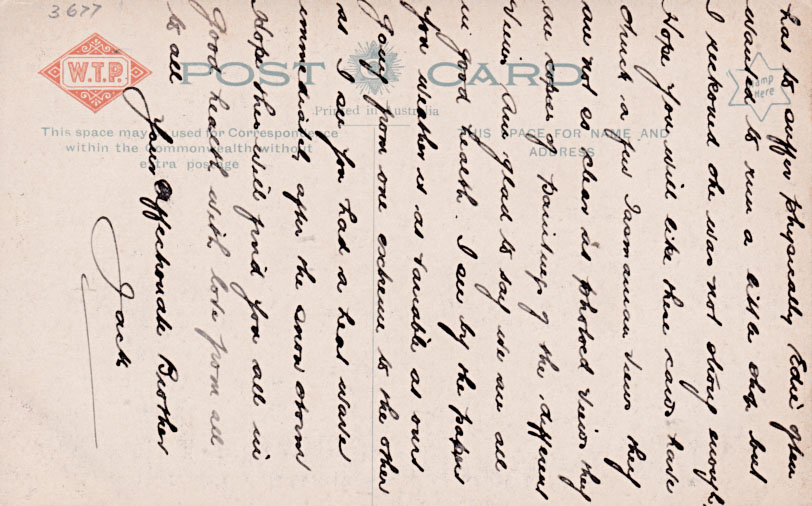 3677
W.T.P.
POST CARD
Printed in Australia
This space may be used for Correspondence
within the Commonwealth without
extra postage
THIS SPACE FOR NAME AND
ADDRESS
Stamp
Here
has to suffer physically Edie often
wanted to run a little shop but
I reckoned she was not strong enough.
Hope you will like these cards have
chuck a few Tasmanian views they
are not as clear as photoed views they
are copies of paintings of the different
views Am glad to say we are all
in good health. I see by the papers
you weather is as variable as ours
going from one extreme to the other
as I see you had a heat wave
immediately after the snow storm
Hope this will find you all in
Good health with love from all
to all
Your Affectionate Brother
Jack